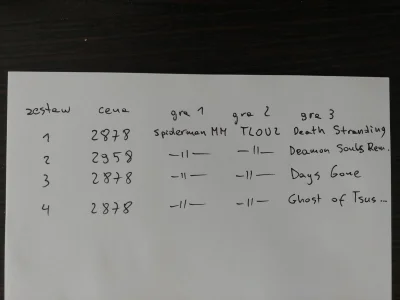 zestaw cena gra 1 gra 2 gra 3
1 2878 Spiderman MM TLOU2 Death Stranding
2 2958 -11- -11- Deamon Souls Rem...
3 2878 -11- -11- Days Gone
4 2878 -11- -11- Ghost of Tsus...